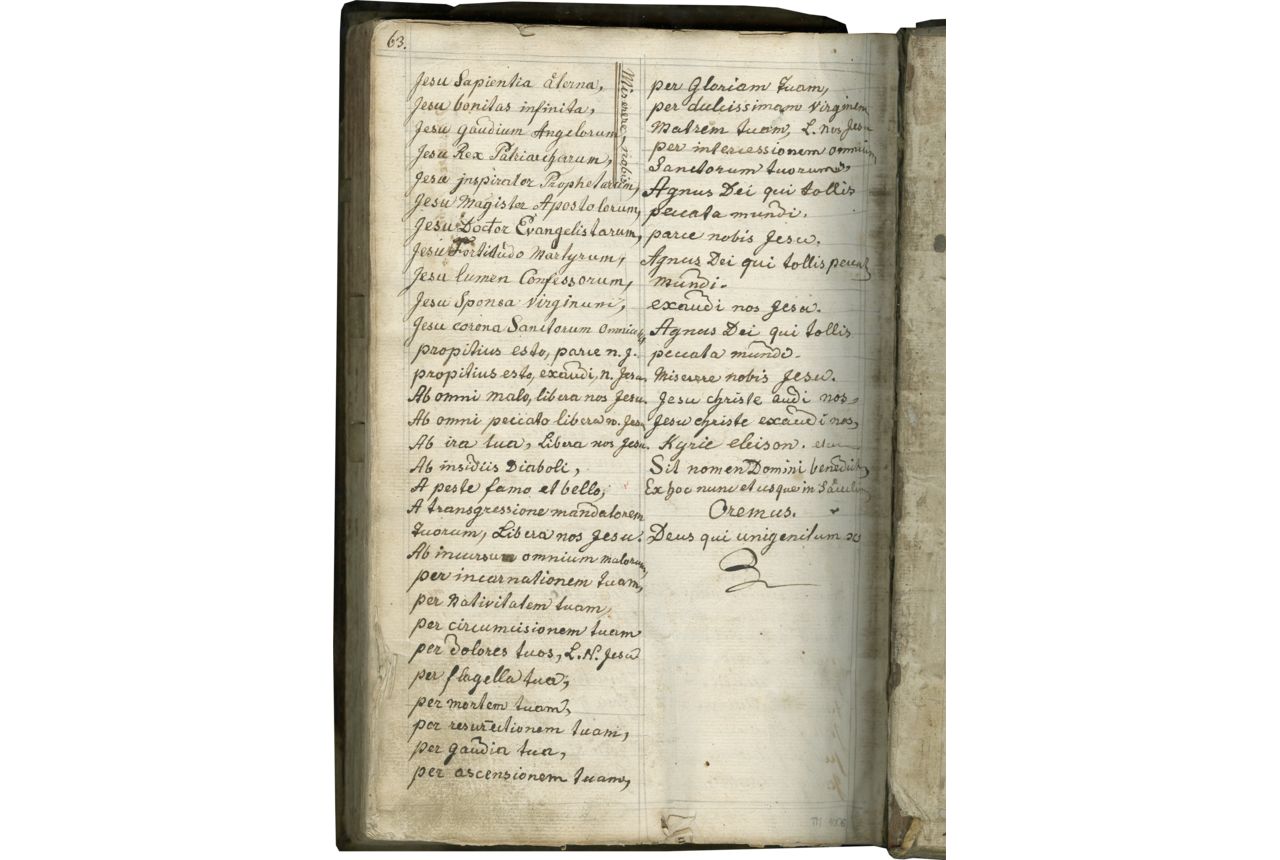 63.
Jesu Sapientia æterna,
Jesu bonitas infinita,
Jesu gaudium Angelorum,
Jesu Rex Patriarcharum,
Jesu jnspirator Prophetarum,
Jesu Magister Apostolorum,
Jesu Doctor Evangelistarum,
Jesu Fortitudo Martyrum,
Jesu lumen Confessorum,
Jesu Sponsa Virginum,
Jesu corona Sanctorum omnium,
propitius esto, parce n. J.
propitius esto, exaudi, n. Jesu.
Ab omni malo, libera nos Jesu.
Ab omni peccato libera n. Jesu
Ab ira tua, Libera nos Jesu.
Ab insidiis Diaboli,
A peste famo et bello,
A transgressione mandatorem
Tuorum, Libera nos Jesu.
Ab incursum omnium malorum,
per incarnationem tuam,
per Nativitatem tuam,
per circumcisionem tuam
per dolores tuos, L. N. Jesu
per flagella tua,
per mortem tuam,
per resurectionem tuam,
per gaudia tua,
per ascensionem tuam,
Miserere nobis
per Gloriam Tuam,
per dulcissimam Virginem
Matrem tuam, L. nos Jesu
per intercessionem omnium
Sanctorum tuorum,
Agnus Dei qui tollis
peccata mundi.
parce nobis Jesu.
Agnus Dei qui tollis peccata
mundi.
exaudi nos Jesu.
Agnus Dei qui tollis
peccata mundi.
Miserere nobis Jesu.
Jesu christe audi nos,
Jesu christe exaudi nos,
Kyrie eleison.
Sit nomen Domini benedict
Ex hoc nunc et usque in Sæculum
Oremus.
Deus qui unigenitum
TH 1006